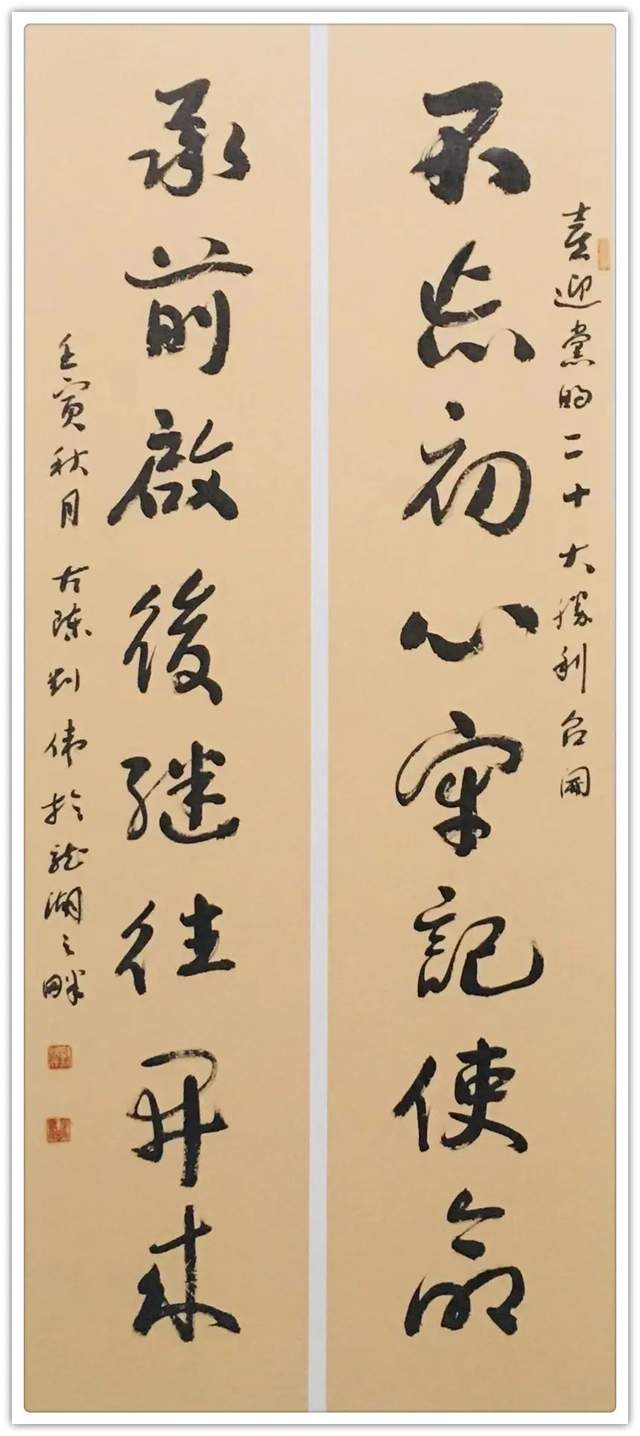 喜迎黨的二十大勝利召開
不忘初心牢記使命
承前啟後継往開来
壬寅秋月古陳刘伟於龙湖之畔